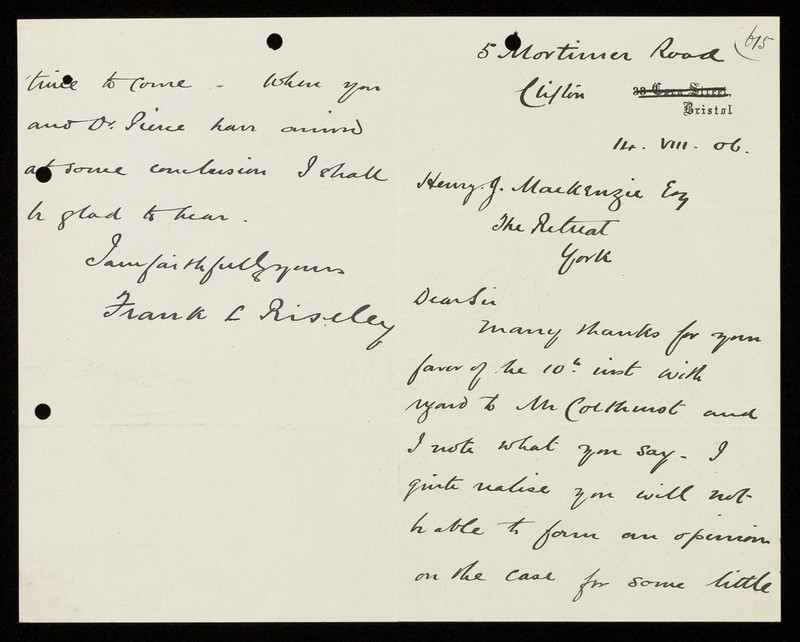 615
5 Mortimer Road
Clifton 38 Corn Street,
Bristol
14. VIII. 06.
Henry J. Mackenzie Esq
The Retreat
York
Dear Sir
Many thanks for your
favor of the 10th inst with
regard to Mr Colthurst and
I note what you say - I
quite realise you will not
be able to form an opinion
on the case for some little
time to come - When you
and Dr. Pierce have arrived
at some conclusion I shall
be glad to hear.
I am faithfully yours
Frank L Riseley